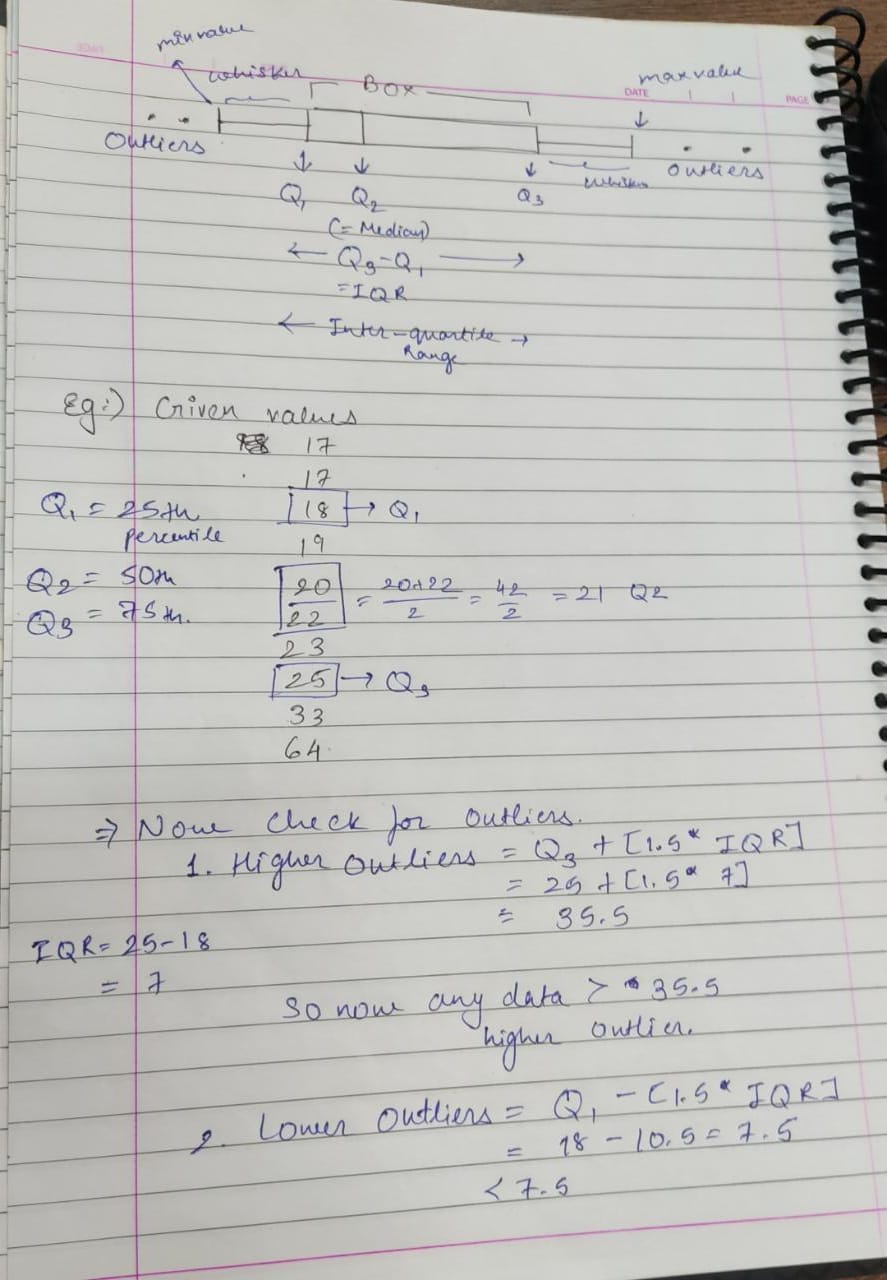 min value
whisker
Box
max value
DATE
PAGE
Outliers
Outliers
whisker
Q1
Q2
Q3
(= Median)
← Q3-Q1 →
= IQR
← Inter-quartile →
Range
Eg:) Given values
17
17
Q1 = 25th
percentile
18 → Q1
19
Q2 = 50th
Q3 = 75th.
20
22
= 20+22/2 = 42/2 = 21 Q2
23
25 → Q3
33
64
⇒ Now check for outliers.
1. Higher outliers = Q3 + [1.5* IQR]
= 25 + [1.5* 7]
= 35.5
IQR = 25-18
= 7
So now any data > 35.5
higher outlier.
2. Lower outliers = Q1 - [1.5* IQR]
= 18 - 10.5 = 7.5
< 7.5